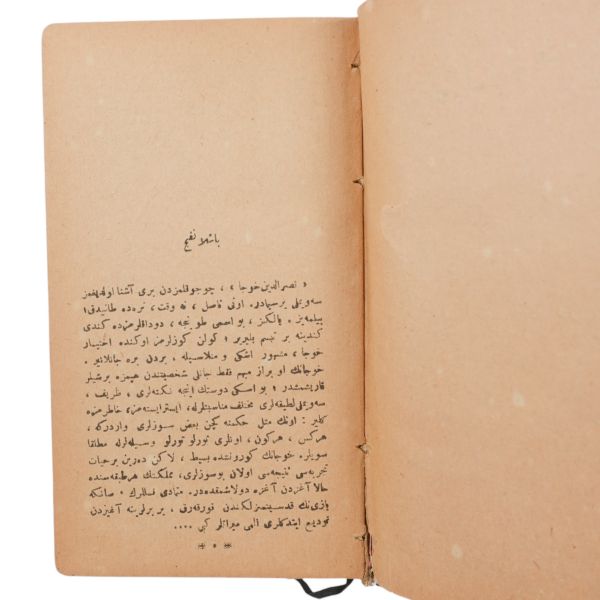 باشلانغیج
« نصرالدین خوجا » ، چوجوقلغمزدن بری آشنا اولدیغمز
سه‌ویملی بر سیمادر. اونی ناصل ، نه وقت ، نره‌ده طانیدق؟
بیلمه‌یز . یالکز ، بو اسمی طوینجه ، دوداقلرمزده کندی
کندینه بر تبسم بلیریر ؛ کولن کوزلرمز اوکنده اختیار
خوجا ، مشهور اشکی و ... ، بردن بره جانلانیر .
خوجانك او براز مبهم فقط جانلی شخصیتندن هپمزه برشیلر
قاریشمشدر ؛ بو اسکی دوستك اینجه نکته‌لری ، ظریف ،
سه‌ویملی لطیفه‌لری مختلف مناسبتلرله، ایسترایسته‌مز، خاطرمزه
کلیر : اونك مثل حکمنه کچن بعض سوزلری واردرکه ،
هرکس ، هرکون ، اونلری تورلو تورلو وسیله‌لرله مطلقا
سویلر. خوجانك کورونشده بسیط ، لاکن ده‌رین برحیات
تجربه‌سی نتیجه‌سی اولان بوسوزلری، مملکتك هرطبقه‌سنده
حالا آغزدن آغزه دولاشمقده‌در. متمادی نسللرك ، صانکه
یازینك قدسیتسزلکندن قورقه‌رق ، بر برلرینه آغیزدن
تودیع ایتدکلری الهی میراثلر کبی ....